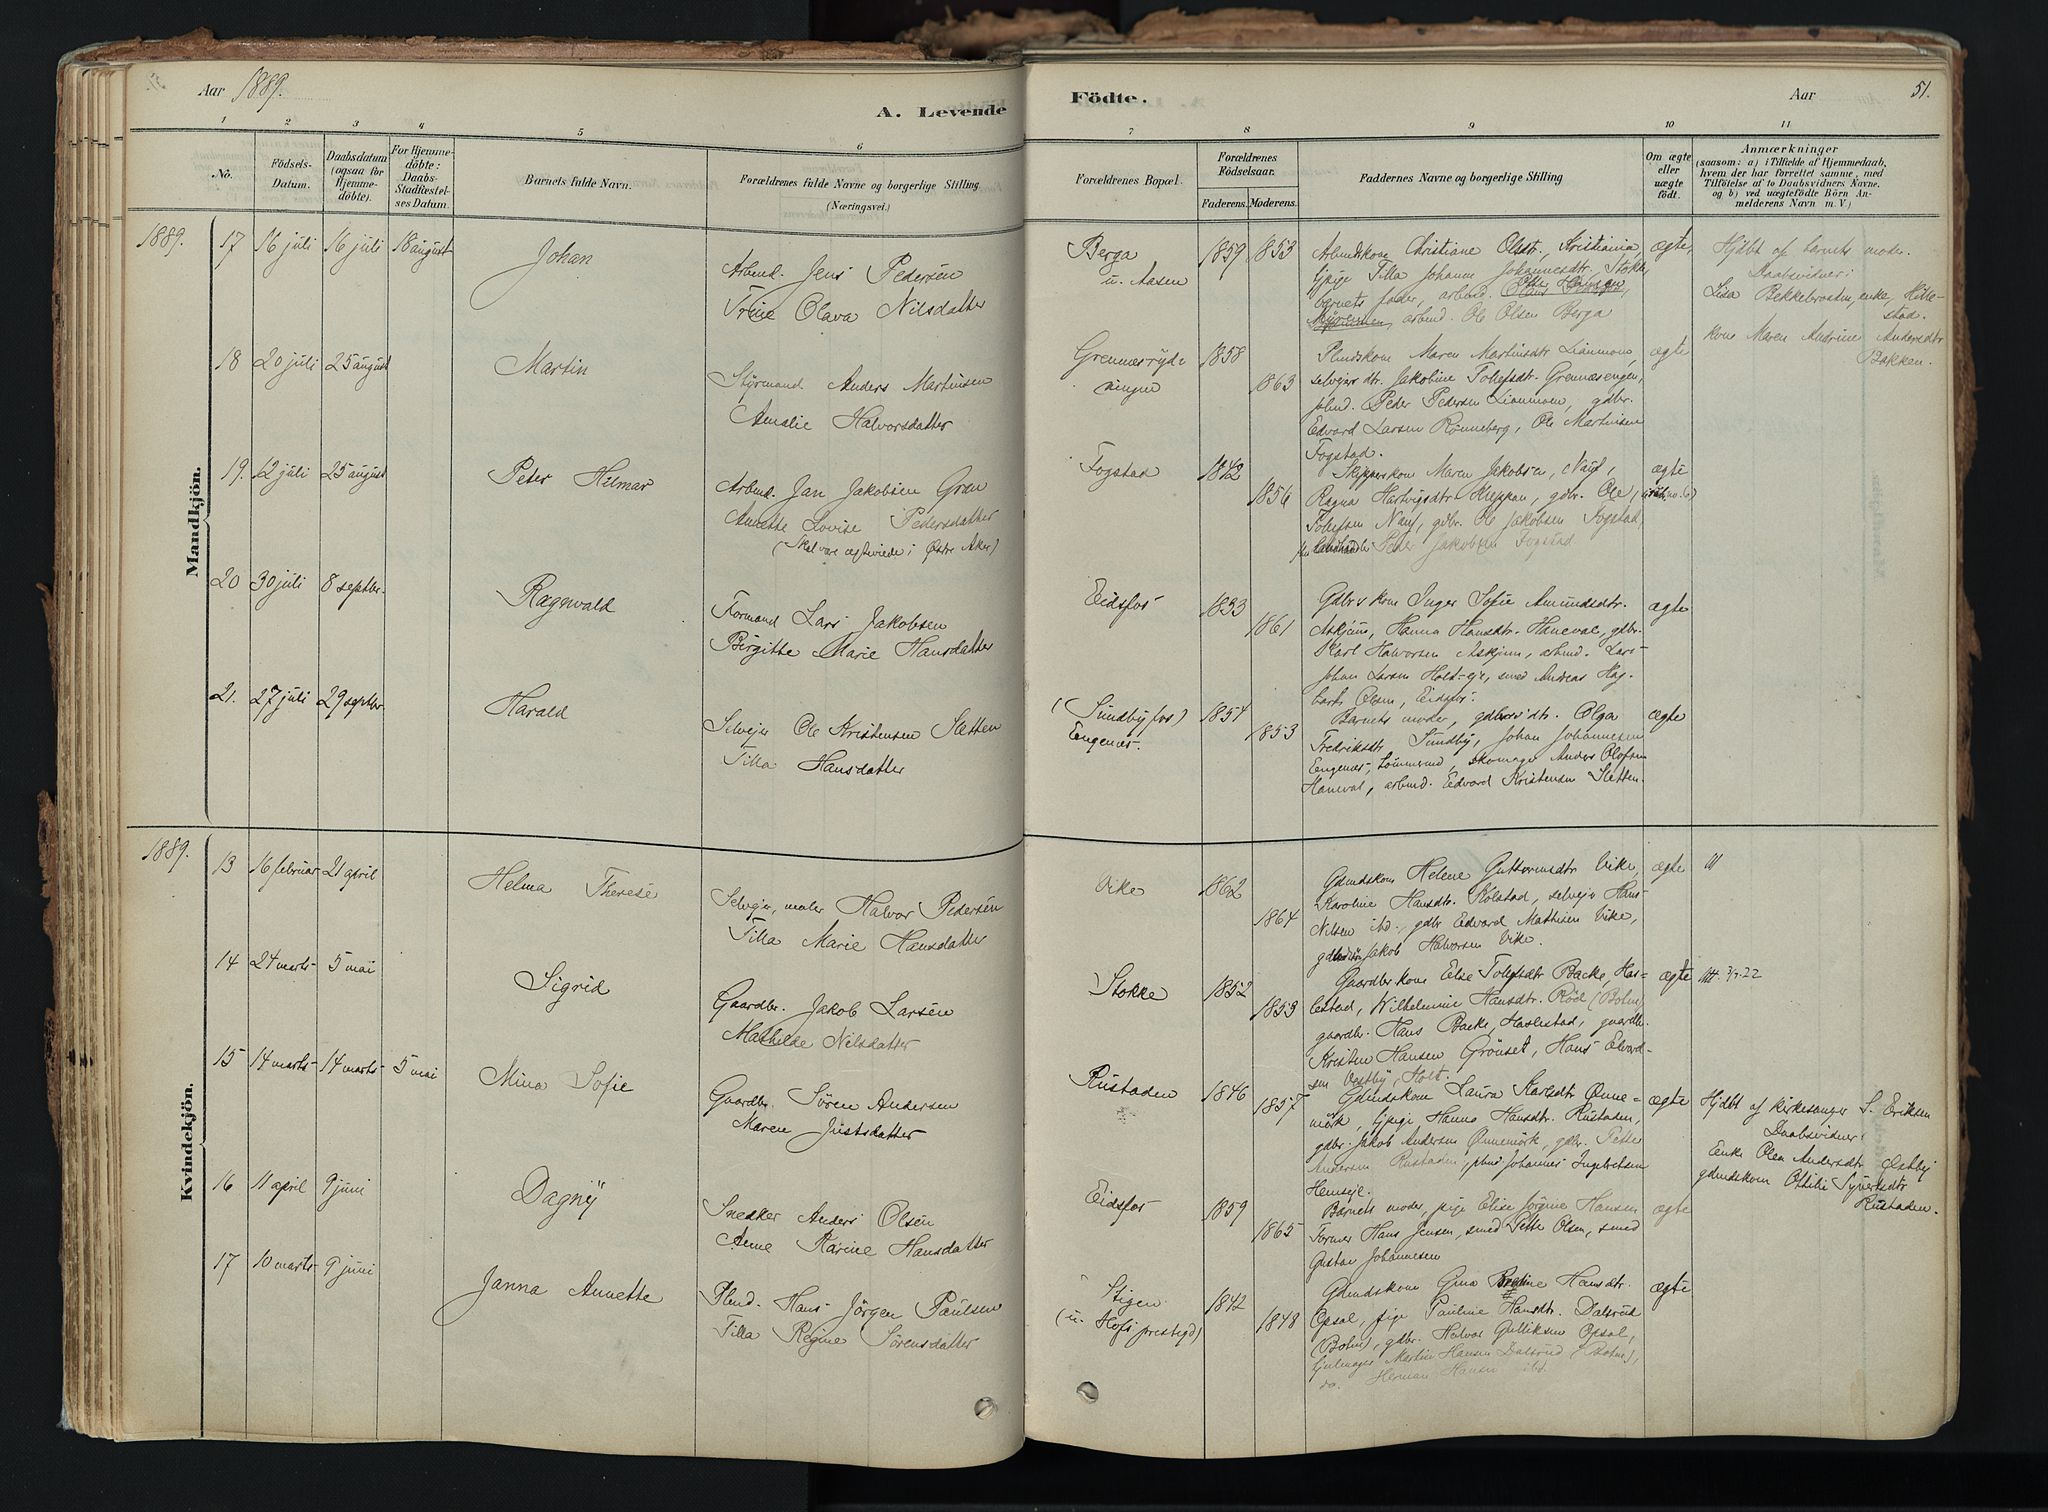 Aar 1889.
A. Levende
Födte.
Aar
51.
1 2 3 4 5 6 7 8 9 10 11
No.
Födsels-
Datum.
Daabsdatum
(ogsaa for
Hjemme-
döbte).
For Hjemme-
döbte:
Daabs-
Stadfæstel-
ses Datum.
Barnets fulde Navn.
Forældrenes fulde Navne og borgerlige Stilling
(Næringsvei.)
Forældrenes Bopæl.
Forældrenes
Födselsaar.
Faderens. Moderens.
Faddernes Navne og borgerlige Stilling
Om ægte
eller
uægte
födt.
Anmærkninger
(saasom: a) i Tilfælde af Hjemmedaab,
hvem der har forrettet samme, med
Tilföielse af to Daabsvidners Navne,
og b) ved uægtefödte Börn An-
melderens Navn m. V.)
Mandkjön.
1889. 17 16 juli 16 juli 18 august Johan
Arbmd. Jens Pedersen
Trine Olava Nilsdatter
Berga
u. Aasen
1859 1853
Arbmdskone Christiane Olsdtr. Kristiania,
pige Tilla Johanne Johannesdtr. Stokke,
barnets fader, arbmd.
arbmd. Ole Olsen Berga
ægte,
Hjdbt af barnets moder.
Daabsvidner:
Lisa Bekkebraaten, enke, Hille-
stad.
kone Maren Andrine Andersdtr
Bakken.
18 20 juli 25 august Martin
Styrmand Anders Martinsen
Amalie Halvorsdatter
Grennesrýd-
ningen
1858 1863
Plmdskone Maren Martinsdtr. Lianmoen,
selveiers dtr. Jakobine Tollefsdtr. Grennesengen,
plmd. Peder Pedersen Lianmoen, gdbr.
Edvard Larsen Rönneberg, Ole Martinsen
Fogstad.
ægte
19. 12 juli 25 august Peter Hilmar
Arbmd. Jan Jakobsen Gran
Annette Lovise Pedersdatter
(Skal være ægteviede i Østre Aker)
Fogstad
1842 1856
Skipperkone Maren Jakobsen, Nauf,
Ragna Hartvigsdtr. Kleppan, gdbr. Ole
Tollefsen Nauf, gdbr. Ole Jakobsen Fogstad,
Peder Jakobsen Fogstad
ægte
20 30 juli 8 septbr. Ragnvald
Formand Lars Jakobsen
Birgitte Marie Hansdatter
Eidsfos
1833 1861
Gdbrs kone Inger Sofie Amundsdtr.
Askjum, Hanna Hansdtr. Haneval, gdbr.
Karl Halvorsen Askjum, arbmd. Lars
Johan Larsen Holt-eje, smed Andreas Hag-
bart Olsen, Eidsfos.
ægte
21. 27 juli 29 septbr. Harald
Selvejer Ole Kristensen Sletten
Tilla Hansdatter
(Sundbyfos)
Engenes.
1854 1853
Barnets moder, gdbrs dtr. Olga
Fredriksdtr Sundby, Johan Johannesen
Engenes, tömmermd, skomager Anders Olofsen
Haneval, arbmd. Edvard Kristensen Sletten.
ægte
Kvindekjön.
1889. 13 16 februar 21 april Helma Therese
Selvejer, maler Halvor Pedersen
Tilla Marie Hansdatter
Vike
1862 1864
Gdmdskone Helene Guttormsdtr Vike,
Karoline Hansdtr. Kolstad, selvejer Hans
Nilsen ibd., gdbr Edvard Mathisen Vike,
Jakob Halvorsen Vike.
ægte
14 24 marts 5 mai Sigrid
Gaardbr. Jakob Larsen
Mathilde Nilsdatter
Stokke
1852 1853
Gaardbr kone Else Tolefsdtr Backe, Has-
lestad, Wilhelmine Hansdtr. Röd (Botne)
gaardbr. Hans Backe, Haslestad, gaardbr.
Kristen Hansen Grönset, Hans Edvard-
sen Vestby, Holt.
ægte
3/7.22
15 14 marts 14 marts 5 mai Mina Sofie
Gaardbr. Sören Andersen
Maren Justsdatter
Rustaden
1846 1857
Gdmdskone Laura Karlsdtr Ønne-
mörk, pige Hanna Hansdtr. Rustaden,
gdbr. Jakob Andersen Ønnemörk, gdbr. Petter
Andersen Rustaden, plmd Johannes Ingebretsen
Hemsejl.
ægte
Hjdbt af kirkesanger S. Eriksen
Daabsvidner:
Enke Olea Andersdtr Østby
gdmdskone Ottilie Syvertsdtr
Rustaden.
16 11 april 9 juni Dagny
Snedker Anders Olsen
Anne Karine Hansdatter
Eidsfos
1859 1865
Barnets moder, pige Elise Jörgine Hansen
Former Hans Jensen, smed Petter Olsen, smed
Gustav Johannesen
ægte
17 10 marts 9 juni Janna Annette
Plmd. Hans Jörgen Paulsen
Tilla Regine Sörensdatter
Stigen
(u. Hofs prestegd)
1842 1848
Gdmdskone Gina Hansdtr.
Opsal, pige Pauline Hansdtr. Dalsrud
(Botne), gdbr. Halvor Gulliksen Opsal,
Martin Hansen Dalsrud (Botne),
do. Herman Hansen ibd.
ægte